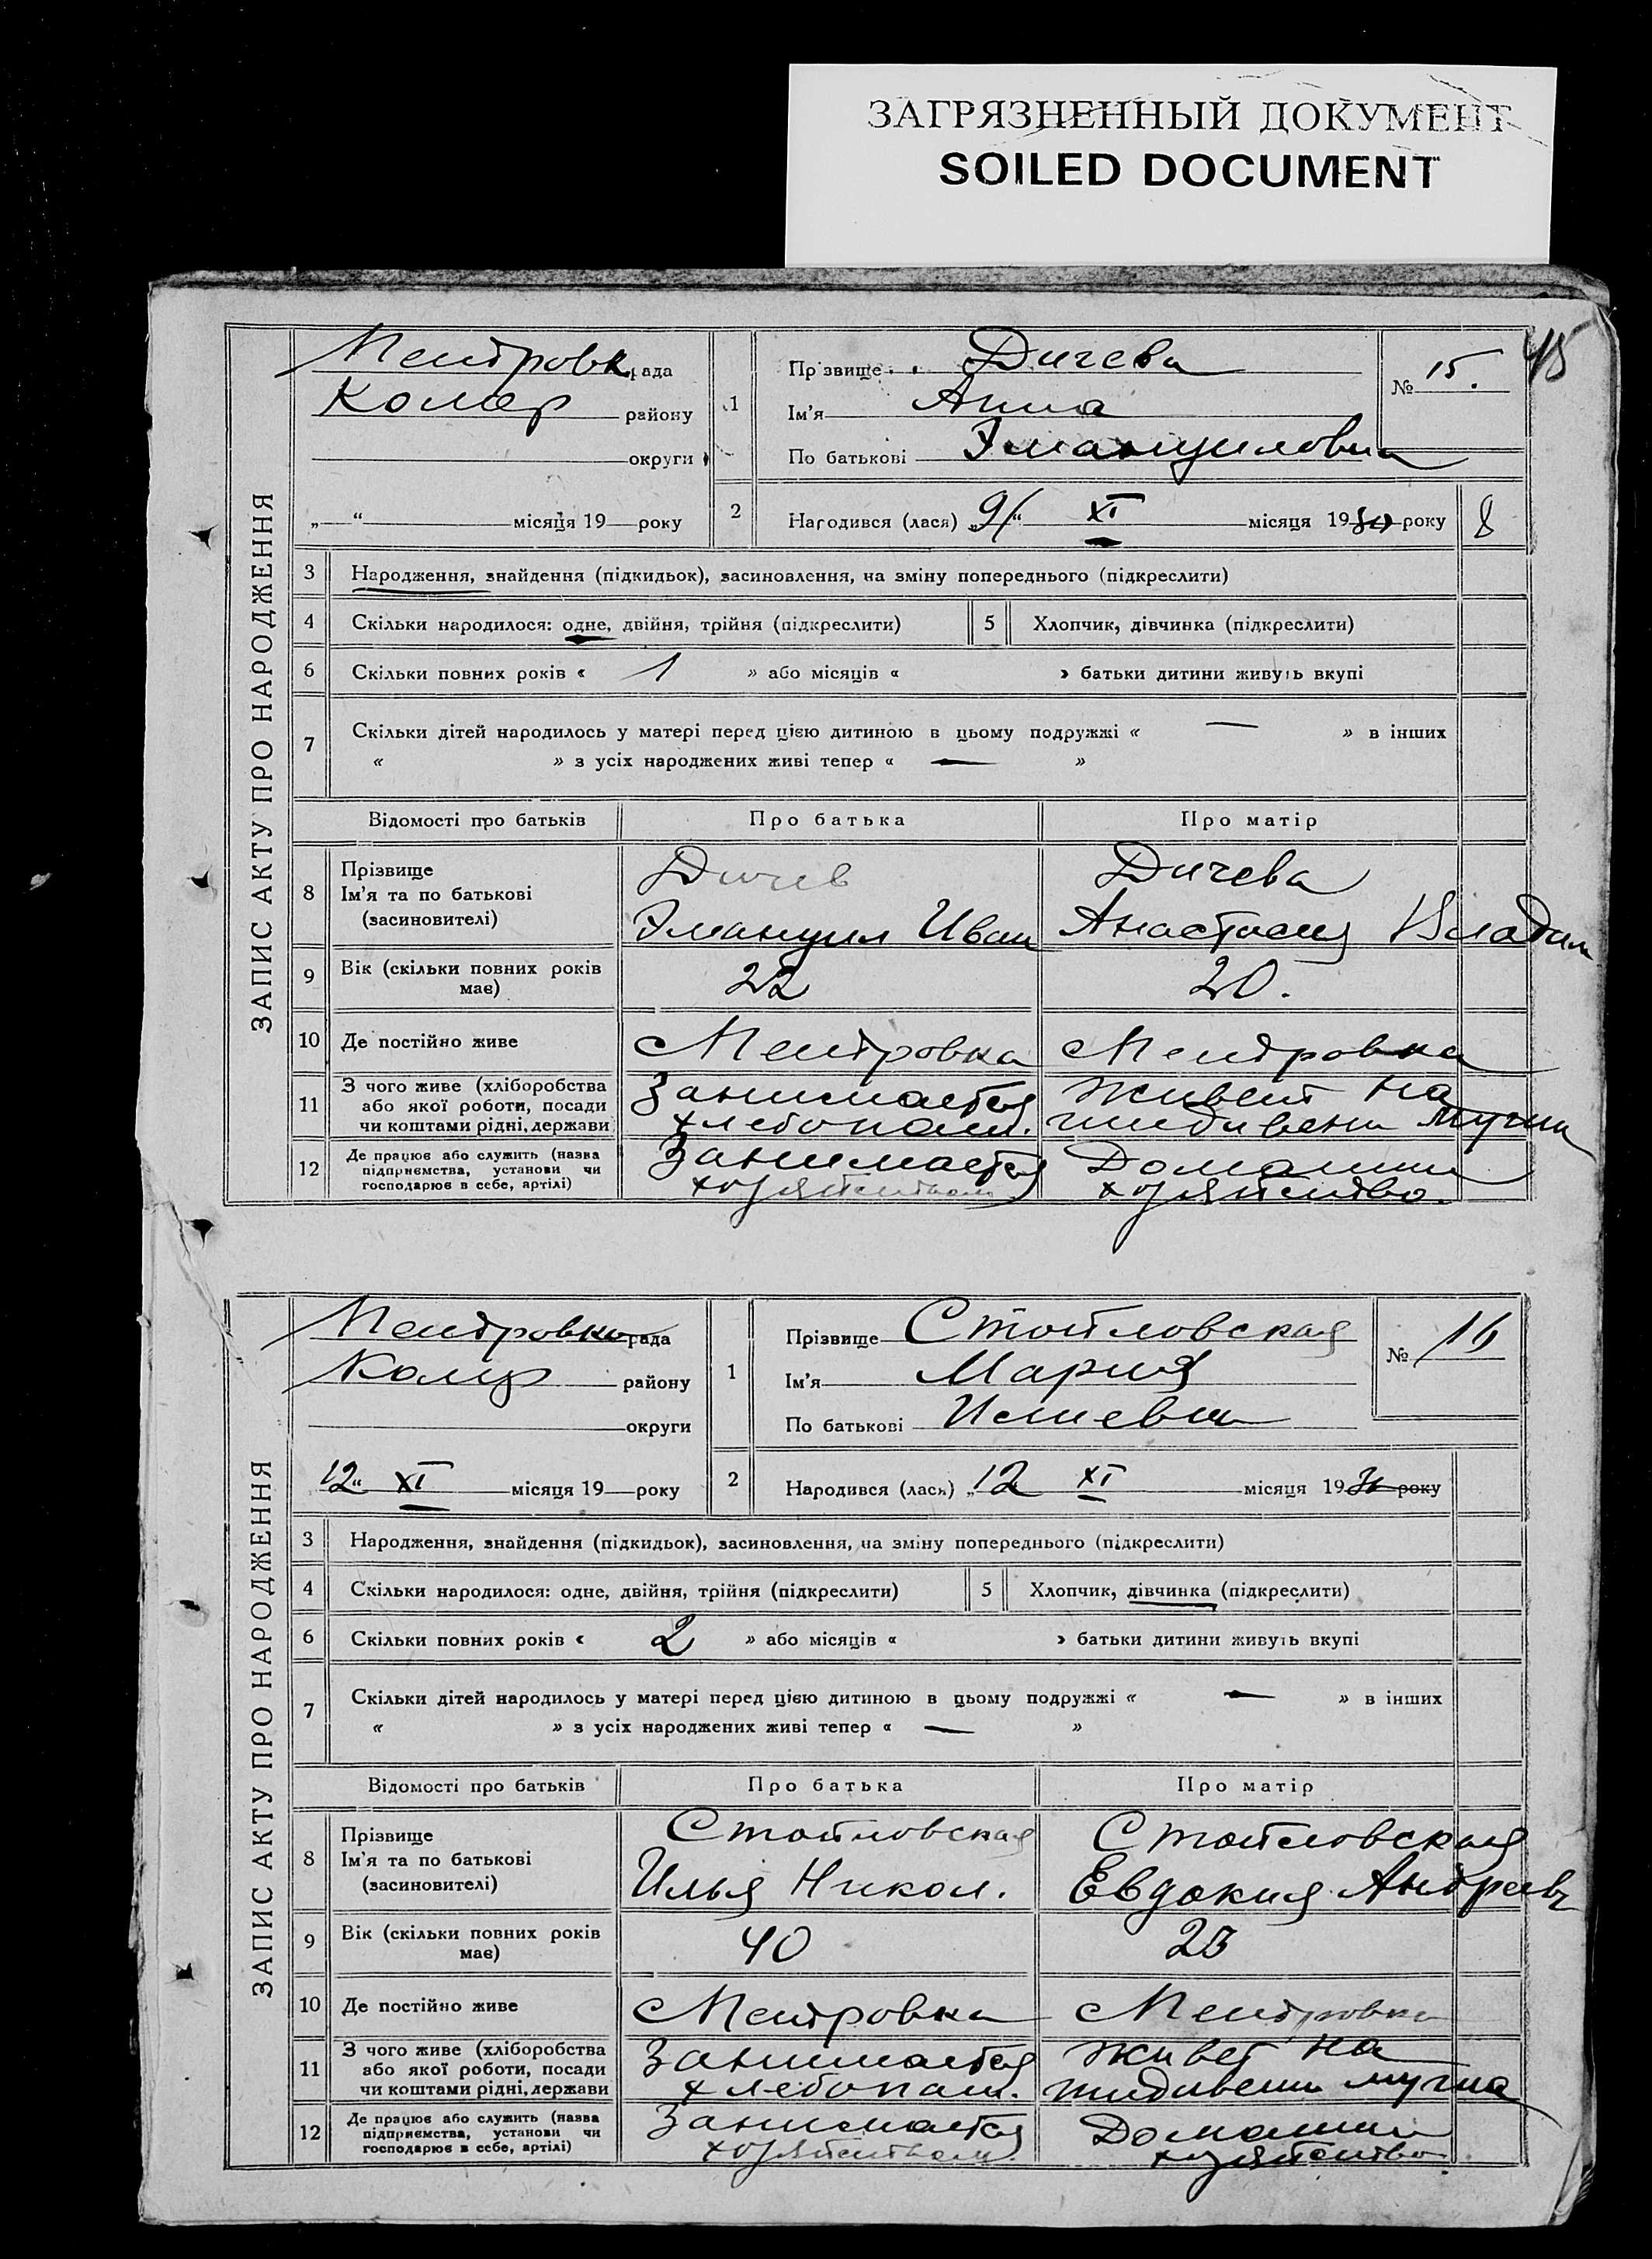 ЗАГРЯЗНЕННЫЙ ДОКУМЕНТ
SOILED DOCUMENT
45
ЗАПИС АКТУ ПРО НАРОДЖЕННЯ
рада
району
округи
„ “ місяця 19 року
1
Прізвище Дичева
Ім'я Анна
По батькові Эмануиловна
№ 15.
2
Народився (лася) „9“ XI місяця 1930 року
8
3 Народження, знайдення (підкидьок), засиновлення, на зміну попереднього (підкреслити)
4 Скільки народилося: одне, двійня, трійня (підкреслити)
5 Хлопчик, дівчинка (підкреслити)
6 Скільки повних років « 1 » або місяців « » батьки дитини живуть вкупі
7 Скільки дітей народилось у матері перед цією дитиною в цьому подружжі « — » в інших
« » з усіх народжених живі тепер « — »
Відомості про батьків Про батька Про матір
8 Прізвище Дичев Дичева
Ім'я та по батькові
(засиновителі) Эмануил Иван Анастасия Владим
9 Вік (скільки повних років
має) 22 20.
10 Де постійно живе
11 З чого живе (хліборобства Занимается живет на
або якої роботи, посади
чи коштами рідні, держави хлебопаш. иждивени мужа
12 Де працює або служить (назва Занимается Домашни
підприємства, установи чи
господарює в себе, артілі) хозяйством хозяйство.
ЗАПИС АКТУ ПРО НАРОДЖЕННЯ
рада
району
округи
12“ XI місяця 19 року
1
Прізвище Стойловская
Ім'я Мария
По батькові Илиевна
№ 16
2
Народився (лася) „12 XI місяця 19 року
3 Народження, знайдення (підкидьок), засиновлення, на зміну попереднього (підкреслити)
4 Скільки народилося: одне, двійня, трійня (підкреслити)
5 Хлопчик, дівчинка (підкреслити)
6 Скільки повних років « 2 » або місяців « » батьки дитини живуть вкупі
7 Скільки дітей народилось у матері перед цією дитиною в цьому подружжі « — » в інших
« » з усіх народжених живі тепер « — »
Відомості про батьків Про батька Про матір
8 Прізвище Стойловская Стойловская
Ім'я та по батькові
(засиновителі) Илья Никол. Евдокия Андреев
9 Вік (скільки повних років
має) 40 23
10 Де постійно живе
11 З чого живе (хліборобства Занимается живет на
або якої роботи, посади
чи коштами рідні, держави хлебопаш. иждивени мужа
12 Де працює або служить (назва Занимается Домашни
підприємства, установи чи
господарює в себе, артілі) хозяйством. хозяйство.